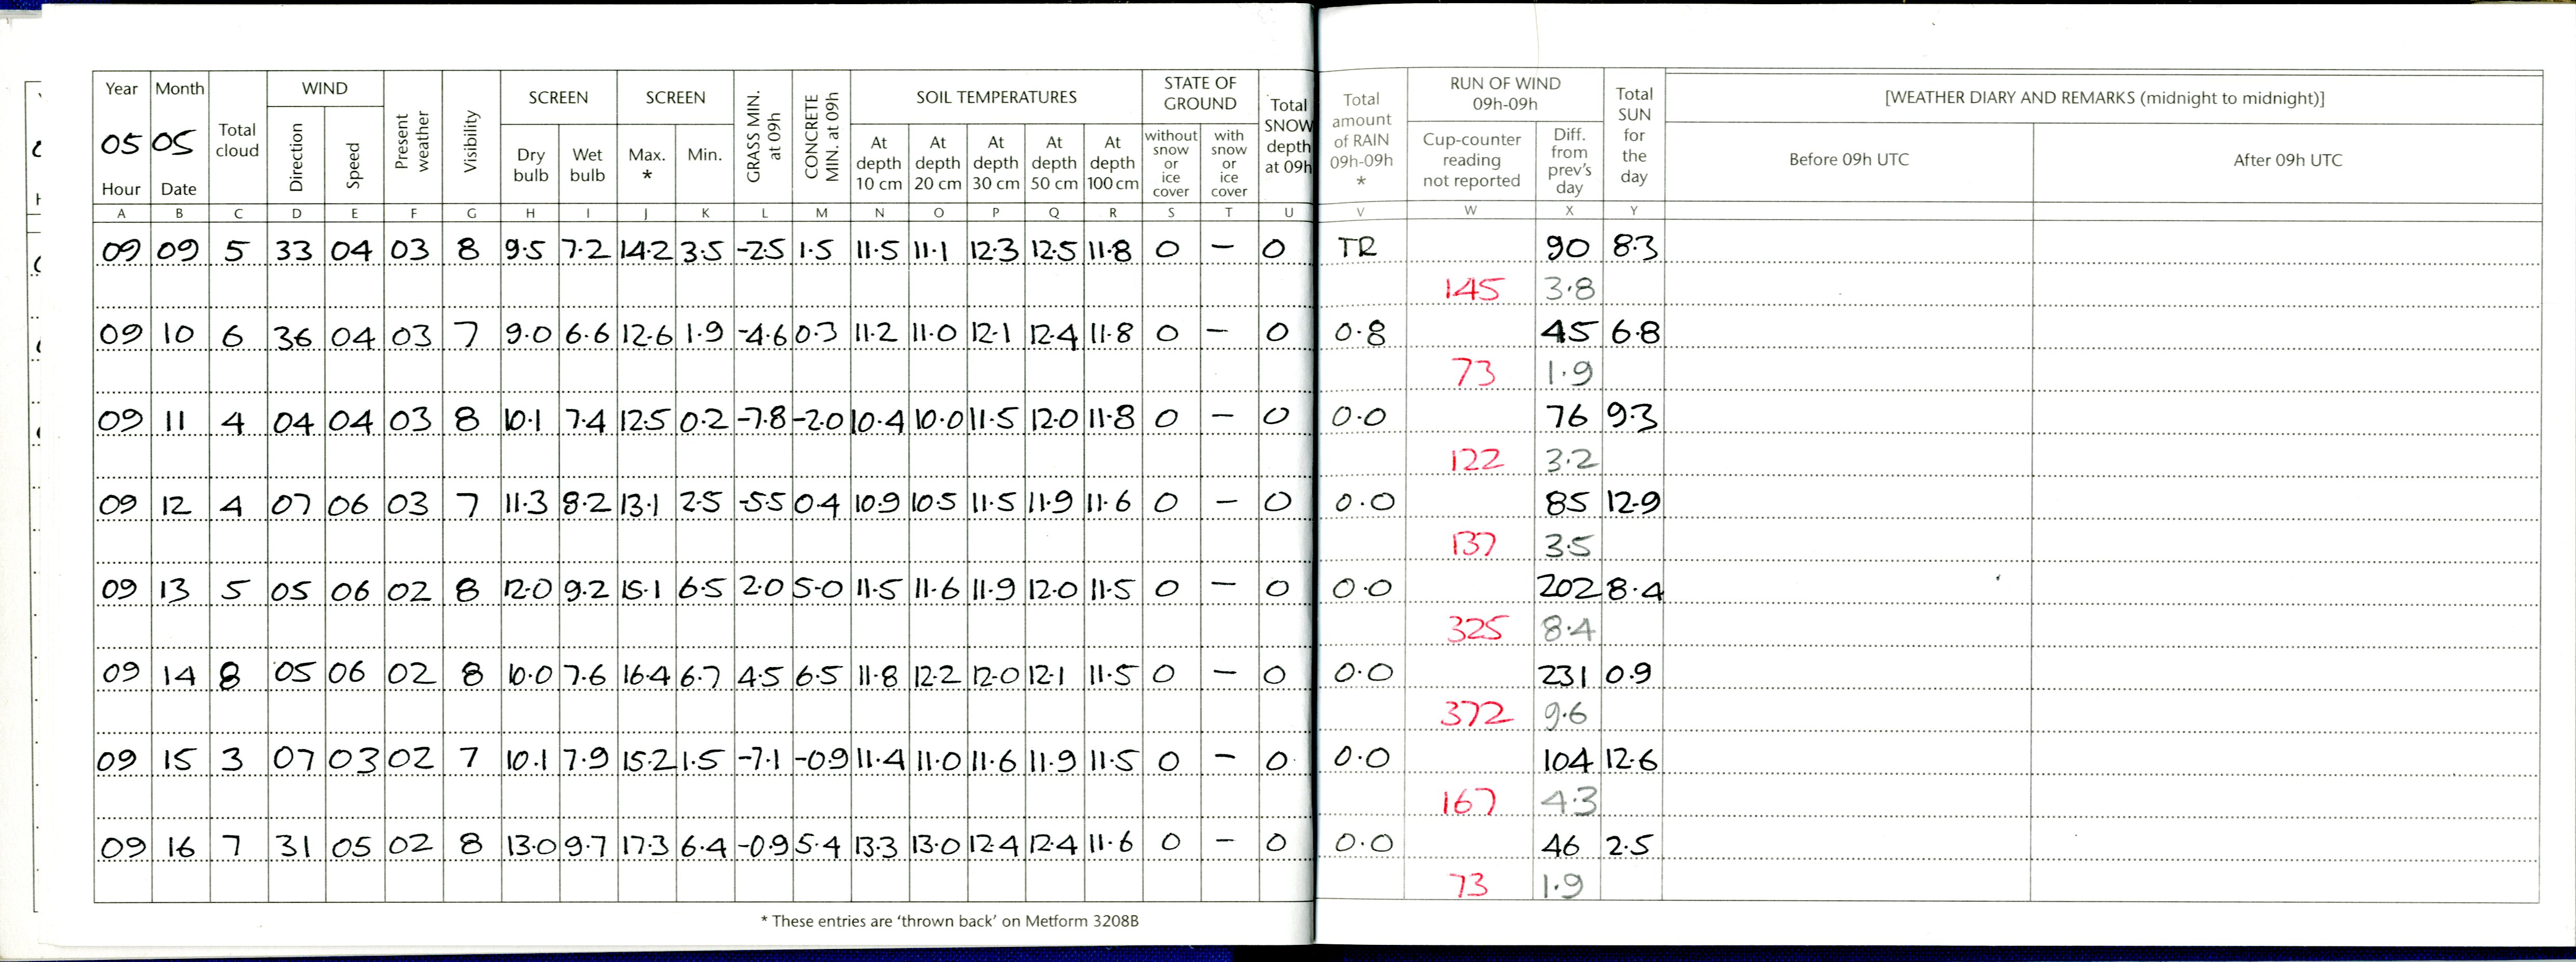 Year Month Total cloud WIND Present weather Visibility SCREEN SCREEN GRASS MIN. at 09h CONCRETE MIN. at 09h SOIL TEMPERATURES STATE OF GROUND Total SNOW depth at 09h Total amount of RAIN 09h-09h * RUN OF WIND 09h-09h Total SUN for the day [WEATHER DIARY AND REMARKS (midnight to midnight)]
05 05 Direction Speed Dry bulb Wet bulb Max. * Min. At depth 10 cm At depth 20 cm At depth 30 cm At depth 50 cm At depth 100 cm without snow or ice cover with snow or ice cover Cup-counter reading not reported Diff. from prev's day Before 09h UTC After 09h UTC
Hour Date
A B C D E F G H I J K L M N O P Q R S T U V W X Y
09 09 5 33 04 03 8 9.5 7.2 14.2 3.5 -2.5 1.5 11.5 11.1 12.3 12.5 11.8 0 – 0 TR 90 8.3
145 3.8
09 10 6 36 04 03 7 9.0 6.6 12.6 1.9 -4.6 0.3 11.2 11.0 12.1 12.4 11.8 0 – 0 0.8 45 6.8
73 1.9
09 11 4 04 04 03 8 10.1 7.4 12.5 0.2 -7.8 -2.0 10.4 10.0 11.5 12.0 11.8 0 – 0 0.0 76 9.3
122 3.2
09 12 4 07 06 03 7 11.3 8.2 13.1 2.5 -5.5 0.4 10.9 10.5 11.5 11.9 11.6 0 – 0 0.0 85 12.9
137 3.5
09 13 5 05 06 02 8 12.0 9.2 15.1 6.5 2.0 5.0 11.5 11.6 11.9 12.0 11.5 0 – 0 0.0 202 8.4
325 8.4
09 14 8 05 06 02 8 10.0 7.6 16.4 6.7 4.5 6.5 11.8 12.2 12.0 12.1 11.5 0 – 0 0.0 231 0.9
372 9.6
09 15 3 07 03 02 7 10.1 7.9 15.2 1.5 -7.1 -0.9 11.4 11.0 11.6 11.9 11.5 0 – 0 0.0 104 12.6
167 4.3
09 16 7 31 05 02 8 13.0 9.7 17.3 6.4 -0.9 5.4 13.3 13.0 12.4 12.4 11.6 0 – 0 0.0 46 2.5
73 1.9
* These entries are ‘thrown back’ on Metform 3208B